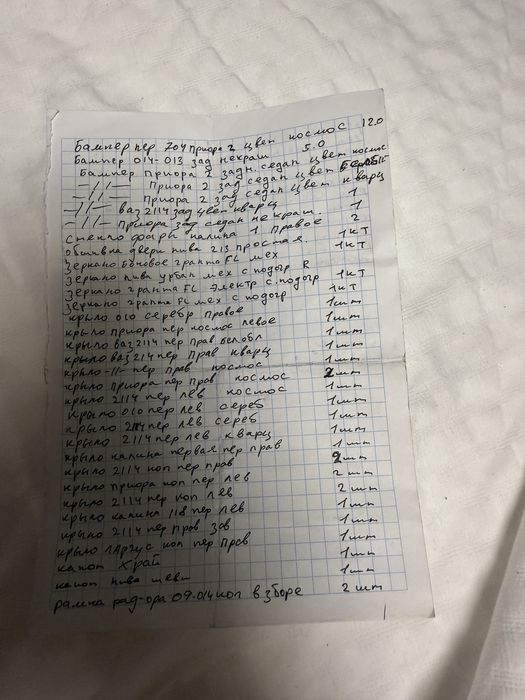 Бампер пер 704 Приора 2 цвет космос 12.0
Бампер 014-013 зад некраш 5.0
Бампер Приора 2 задн. седан цвет космос
—//— Приора 2 зад седан цвет
—//— Приора 2 зад седан цвет кварц
—//— Ваз 2114 зад цвет кварц 1
—//— Приора зад седан некраш. 1
Стекло фары калина 1 правое 2
Обшивка двери нива 213 простая. 1кт
Зеркало боковое гранта FL мех 1кт
Зеркало нива урбан мех с подогр R
Зеркало гранта FL электр с. подогр 1кт
Зеркало гранта FL мех с подогр 1кт
крыло 010 серебр правое 1шт
крыло приора пер космос левое 1шт
крыло ваз 2114 пер прав белобл 1шт
крыло ваз 2114 пер прав кварц 1шт
крыло -//- пер прав космос 1шт
крыло приора пер прав космос 2шт
крыло 2114 пер лев космос 1шт
крыло 010 пер лев сереб 1шт
крыло 2114 пер лев сереб 1шт
крыло 2114 пер лев кварц 1шт
крыло калина первая пер прав 1шт
крыло 2114 коп пер прав 2шт
крыло приора коп пер лев 2шт
крыло 2114 пер коп лев 2шт
крыло калина 118 пер лев 1шт
крыло 2114 пер прав зав 1шт
крыло Ларгус коп пер прав 1шт
капот Храй 1шт
капот нива шеви 1шт
рамка рад-ора 09-014 коп в зборе 2шт